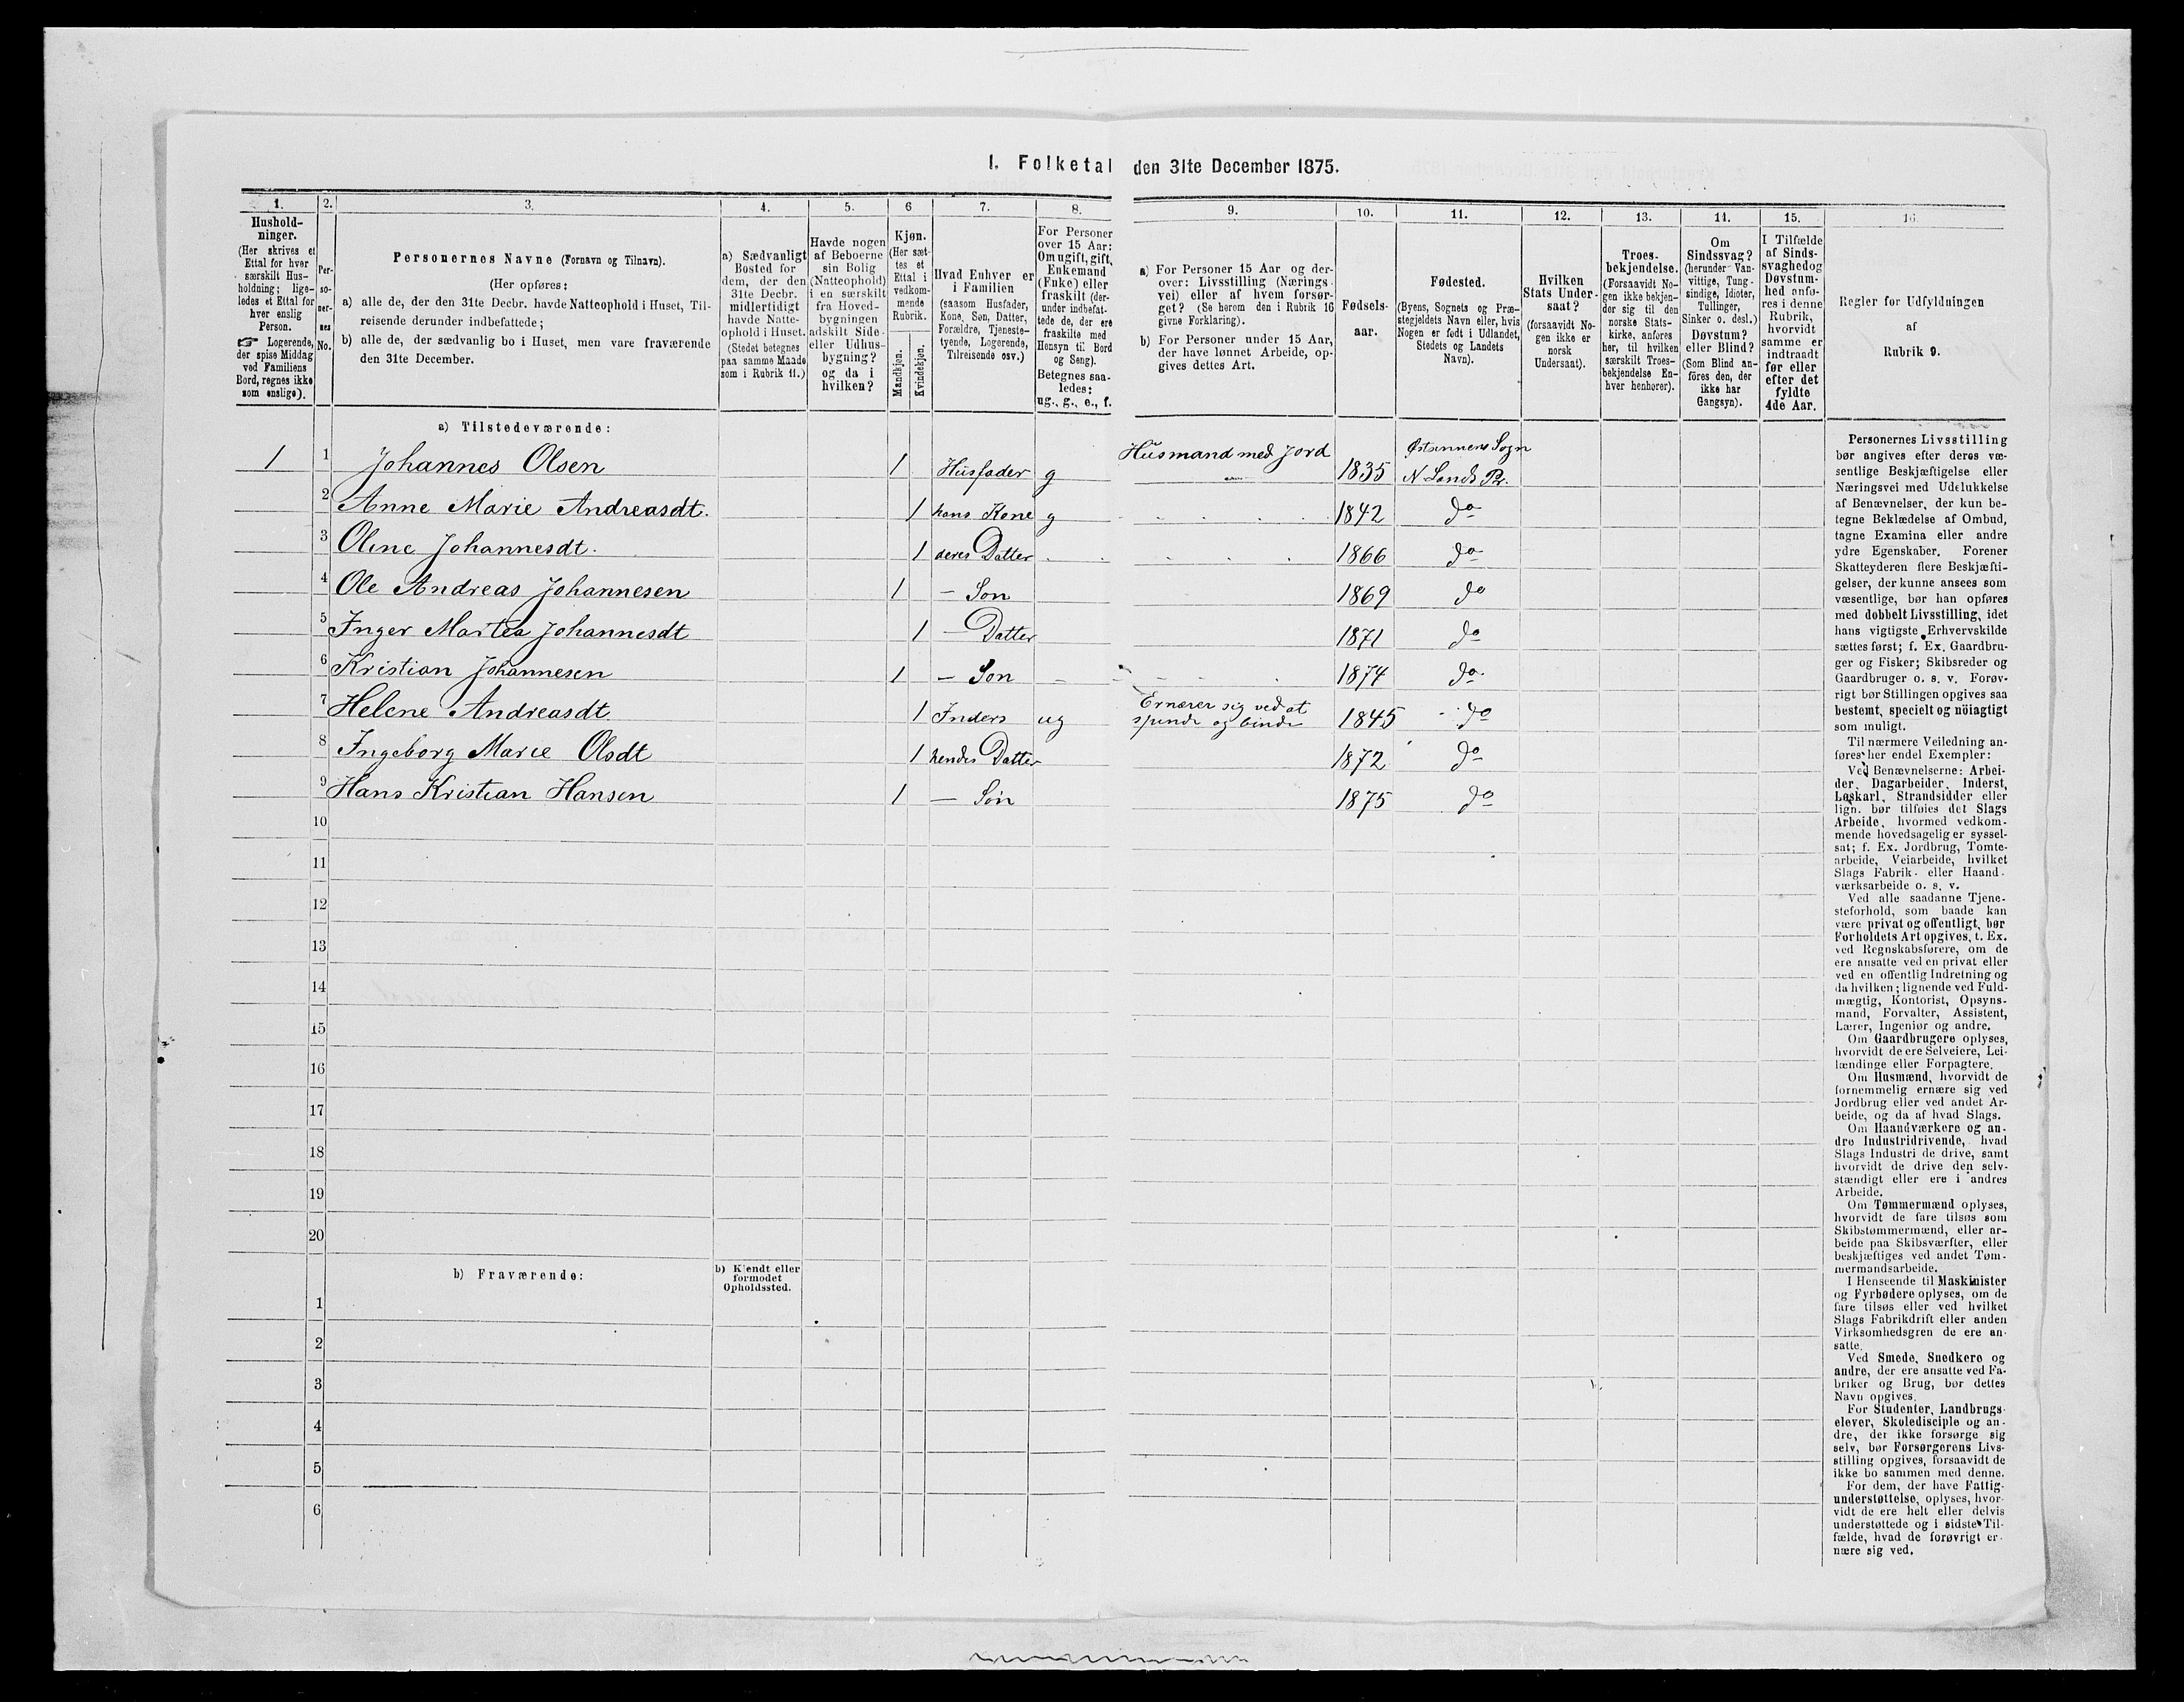 I. Folketal den 31te December 1875.
1. 2. 3. 4. 5. 6 7. 8. 9. 10. 11. 12. 13. 14. 15. 16.
Hushold-
ninger.
(Her skrives et
Ettal for hver
særskilt Hus-
holdning; lige-
ledes et Ettal for
hver enslig
Person.
☞ Logerende,
der spise Middag
ved Familiens
Bord, regnes ikke
som enslige).
Per-
so-
ner-
nes
No.
Personernes Navne (Fornavn og Tilnavn).
(Her opføres:
a) alle de, der den 31te Decbr. havde Natteophold i Huset, Til-
reisende derunder indbefattede;
b) alle de, der sædvanlig bo i Huset, men vare fraværende
den 31te December.
a) Sædvanligt
Bosted for
dem, der den
31te Decbr.
midlertidigt
havde Natte-
ophold i Huset.
(Stedet betegnes
paa samme Maade
som i Rubrik 11.)
Havde nogen
af Beboerne
sin Bolig
(Natteophold)
i en særskilt
fra Hoved-
bygningen
adskilt Side-
eller Udhus-
bygning?
og da i
hvilken?
Kjøn.
(Her sæt-
tes et
Ettal i
vedkom-
mende
Rubrik.
Mandkjøn.
Kvindekjøn.
Hvad Enhver er
i Familien
(saasom Husfader,
Kone, Søn, Datter,
Forældre, Tjeneste-
tyende, Logerende,
Tilreisende osv.)
For Personer
over 15 Aar:
Om ugift, gift,
Enkemand
(Enke) eller
fraskilt (der-
under indbefat-
tede de, der ere
fraskilte med
Hensyn til Bord
og Seng).
Betegnes saa-
ledes:
ug., g., e., f.
a) For Personer 15 Aar og der-
over: Livsstilling (Nærings-
vei) eller af hvem forsør-
get? (Se herom den i Rubrik 16
givne Forklaring).
b) For Personer under 15 Aar,
der have lønnet Arbeide, op-
gives dettes Art.
Fødsels-
aar.
Fødested.
(Byens, Sognets og Præ-
stegjeldets Navn eller, hvis
Nogen er født i Udlandet,
Stedets og Landets
Navn).
Hvilken
Stats Under-
saat?
(forsaavidt No-
gen ikke er
norsk
Undersaat).
Troes-
bekjendelse.
(Forsaavidt No-
gen ikke bekjen-
der sig til den
norske Stats-
kirke, anføres
her, til hvilken
særskilt Troes-
bekjendelse En-
hver henhører).
Om
Sindssvag?
(herunder Van-
vittige, Tung-
sindige, Idioter,
Tullinger,
Sinker o. desl.)
Døvstum?
eller Blind?
(Som Blind an-
føres den, der
ikke har
Gangsyn).
I Tilfælde
af Sinds-
svaghed og
Døvstum-
hed anfø-
res i denne
Rubrik,
hvorvidt
samme er
indtraadt
før eller
efter det
fyldte
4de Aar.
Regler for Udfyldningen
af
Rubrik 9.
a) Tilstedeværende:
1 1 Johannes Olsen 1 Husfader g Husmand med Jord 1835 Østsinnens Sogn N Lands Pr.
2 Anne Marie Andreasdt. 1 hans Kone g 1842 do
3 Oline Johannesdt. 1 deres Datter 1866 do
4 Ole Andreas Johannesen 1 — Søn 1869 do
5 Inger Martea Johannesdt 1 — Datter 1871 do
6 Kristian Johannesen 1 — Søn 1874 do
7 Helene Andreasdt 1 Inders ug Ernærer sig ved at spinde og binde 1845 do
8 Ingeborg Marie Olsdt 1 hendes Datter 1872 do
9 Hans Kristian Hansen 1 — Søn 1875 do
10
11
12
13
14
15
16
17
18
19
20
b) Fraværende:
b) Kjendt eller
formodet
Opholdssted.
1
2
3
4
5
6
Personernes Livsstilling
bør angives efter deres væ-
sentlige Beskjæftigelse eller
Næringsvei med Udelukkelse
af Benævnelser, der kun be-
tegne Beklædelse af Ombud,
tagne Examina eller andre
ydre Egenskaber. Forener
Skatteyderen flere Beskjæfti-
gelser, der kunne ansees som
væsentlige, bør han opføres
med dobbelt Livsstilling, idet
hans vigtigste Erhvervskilde
sættes først; f. Ex. Gaardbru-
ger og Fisker; Skibsreder og
Gaardbruger o. s. v. Forøv-
rigt bør Stillingen opgives saa
bestemt, specielt og nöiagtigt
som muligt.
Til nærmere Veiledning an-
føres her endel Exempler:
Ved Benævnelserne: Arbei-
der, Dagarbeider, Inderst,
Løskarl, Strandsidder eller
lign. bør tilføies det Slags
Arbeide, hvormed vedkom-
mende hovedsagelig er syssel-
sat; f. Ex. Jordbrug, Tomte-
arbeide, Veiarbeide, hvilket
Slags Fabrik- eller Haand-
værksarbeide o. s. v.
Ved alle saadanne Tjene-
steforhold, som baade kan
være privat og offentligt, bør
Forholdets Art opgives, t. Ex.
ved Regnskabsførere, om de
ere ansatte ved en privat eller
ved en offentlig Indretning og
da hvilken; lignende ved Fuld-
mægtig, Kontorist, Opsyns-
mand, Forvalter, Assistent,
Lærer, Ingeniør og andre.
Om Gaardbrugere oplyses,
hvorvidt de ere Selveiere, Lei-
lændinge eller Forpagtere.
Om Husmænd, hvorvidt de
fornemmelig ernære sig ved
Jordbrug eller ved andet Ar-
beide, og da af hvad Slags.
Om Haandværkere og an-
dre Industridrivende, hvad
Slags Industri de drive, samt
hvorvidt de drive den selv-
stændigt eller ere i andres
Arbeide.
Om Tømmermænd oplyses,
hvorvidt de fare tilsøs som
Skibstømmermænd, eller ar-
beide paa Skibsværfter, eller
beskjæftiges ved andet Tøm-
mermandsarbeide.
I Henseende til Maskinister
og Fyrbødere oplyses, om de
fare tilsøs eller ved hvilket
Slags Fabrikdrift eller anden
Virksomhedsgren de ere an-
satte.
Ved Smede, Snedkere og
andre, der ere ansatte ved Fa-
briker og Brug, bør dettes
Navn opgives.
For Studenter, Landbrugs-
elever, Skoledisciple og an-
dre, der ikke forsørge sig
selv, bør Forsørgerens Livs-
stilling opgives, forsaavidt de
ikke bo sammen med denne.
For dem, der have Fattig-
understøttelse, oplyses, hvor-
vidt de ere helt eller delvis
understøttede og i sidste Til-
fælde, hvad de forøvrigt er-
nære sig ved.